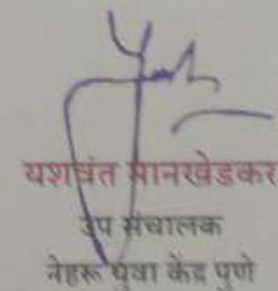 यशवंत मानखेडकर
उप संचालक
नेहरू युवा केंद्र पुणे